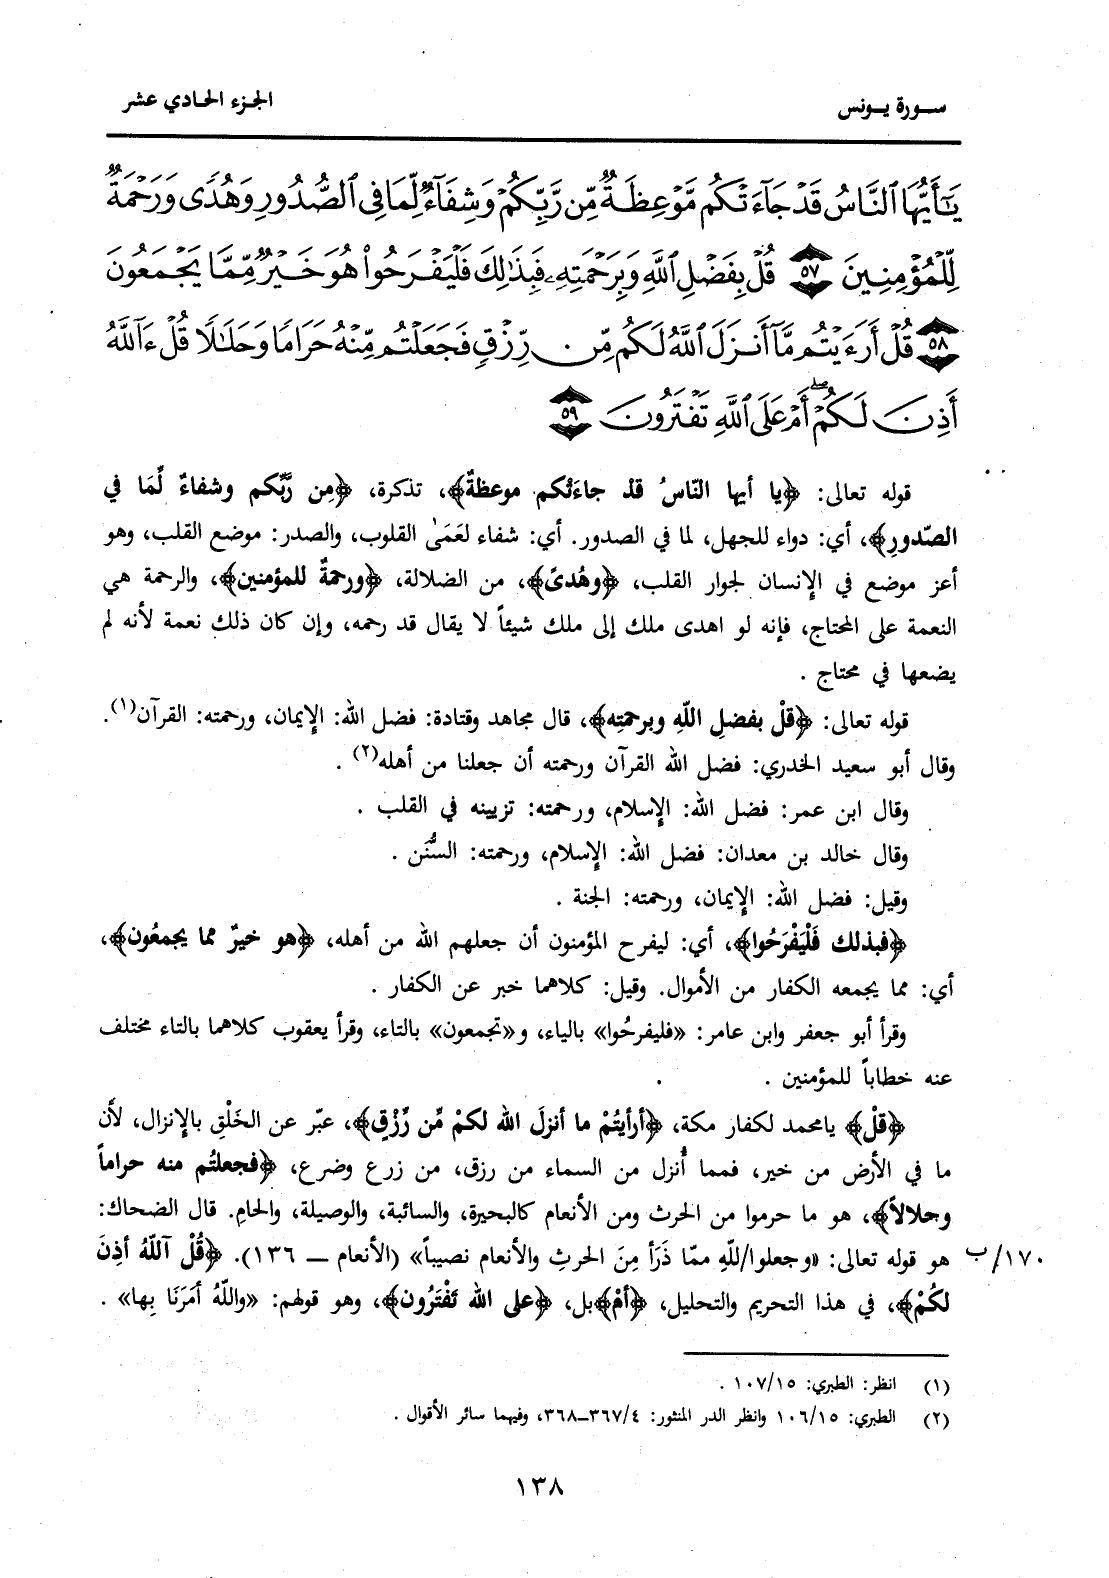 سورة يونس
الجزء الحادي عشر
يَٰٓأَيُّهَا ٱلنَّاسُ قَدْ جَآءَتْكُم مَّوْعِظَةٌ مِّن رَّبِّكُمْ وَشِفَآءٌ لِّمَا فِى ٱلصُّدُورِ وَهُدًى وَرَحْمَةٌ
لِّلْمُؤْمِنِينَ ٥٧ قُلْ بِفَضْلِ ٱللَّهِ وَبِرَحْمَتِهِۦ فَبِذَٰلِكَ فَلْيَفْرَحُوا۟ هُوَ خَيْرٌ مِّمَّا يَجْمَعُونَ
٥٨ قُلْ أَرَءَيْتُم مَّآ أَنزَلَ ٱللَّهُ لَكُم مِّن رِّزْقٍ فَجَعَلْتُم مِّنْهُ حَرَامًا وَحَلَٰلًا قُلْ ءَآللَّهُ
أَذِنَ لَكُمْ ۖ أَمْ عَلَى ٱللَّهِ تَفْتَرُونَ ٥٩
قوله تعالى: ﴿يا أيها النّاسُ قدْ جاءَتْكم موعظةٌ﴾، تذكرة، ﴿مِن رَّبِّكم وشفاءٌ لِّمَا في
الصّدورِ﴾، أي: دواء للجهل، لما في الصدور. أي: شفاء لعَمَىٰ القلوب، والصدر: موضع القلب، وهو
أعز موضع في الإنسان لجوار القلب، ﴿وهُدىً﴾، من الضلالة، ﴿ورحمةٌ للمؤمنين﴾، والرحمة هي
النعمة على المحتاج، فإنه لو اهدى ملك إلى ملك شيئاً لا يقال قد رحمه، وإن كان ذلك نعمة لأنه لم
يضعها في محتاج .
قوله تعالى: ﴿قلْ بفضلِ اللّهِ وبرحمتِه﴾، قال مجاهد وقتادة: فضل الله: الإيمان، ورحمته: القرآن(١).
وقال أبو سعيد الخدري: فضل الله القرآن ورحمته أن جعلنا من أهله(٢) .
وقال ابن عمر: فضل الله: الإسلام، ورحمته: تزيينه في القلب .
وقال خالد بن معدان: فضل الله: الإسلام، ورحمته: السُّنَن .
وقيل: فضل الله: الإيمان، ورحمته: الجنة .
﴿فبذلك فَلْيَفْرَحُوا﴾، أي: ليفرح المؤمنون أن جعلهم الله من أهله، ﴿هو خيرٌ مما يجمعُون﴾،
أي: مما يجمعه الكفار من الأموال. وقيل: كلاهما خبر عن الكفار .
وقرأ أبو جعفر وابن عامر: «فليفرحُوا» بالياء، و«تجمعون» بالتاء، وقرأ يعقوب كلاهما بالتاء مختلف
عنه خطاباً للمؤمنين .
﴿قلْ﴾ يامحمد لكفار مكة، ﴿أرأيتُمْ ما أنزلَ الله لكمْ مِّن رِّزْقٍ﴾، عبّر عن الخَلْقِ بالإنزال، لأن
ما في الأرض من خير، فمما أُنزل من السماء من رزق، من زرع وضرع، ﴿فجعلتُم منه حراماً
وحلالاً﴾، هو ما حرموا من الحرث ومن الأنعام كالبحيرة، والسائبة، والوصيلة، والحامِ. قال الضحاك:
هو قوله تعالى: «وجعلوا/للّهِ ممّا ذَرَأ مِنَ الحرثِ والأنعام نصيباً» (الأنعام ــ ١٣٦). ﴿قُلْ آللّهُ أذِنَ
١٧٠/ب
لكُمْ﴾، في هذا التحريم والتحليل، ﴿أمْ﴾بل، ﴿على الله تَفْتَرُون﴾، وهو قولهم: «واللّهُ أمَرَنَا بِها» .
(١) انظر: الطبري: ١٠٧/١٥ .
(٢) الطبري: ١٠٦/١٥ وانظر الدر المنثور: ٣٦٧/٤ـ٣٦٨، وفيهما سائر الأقوال .
١٣٨